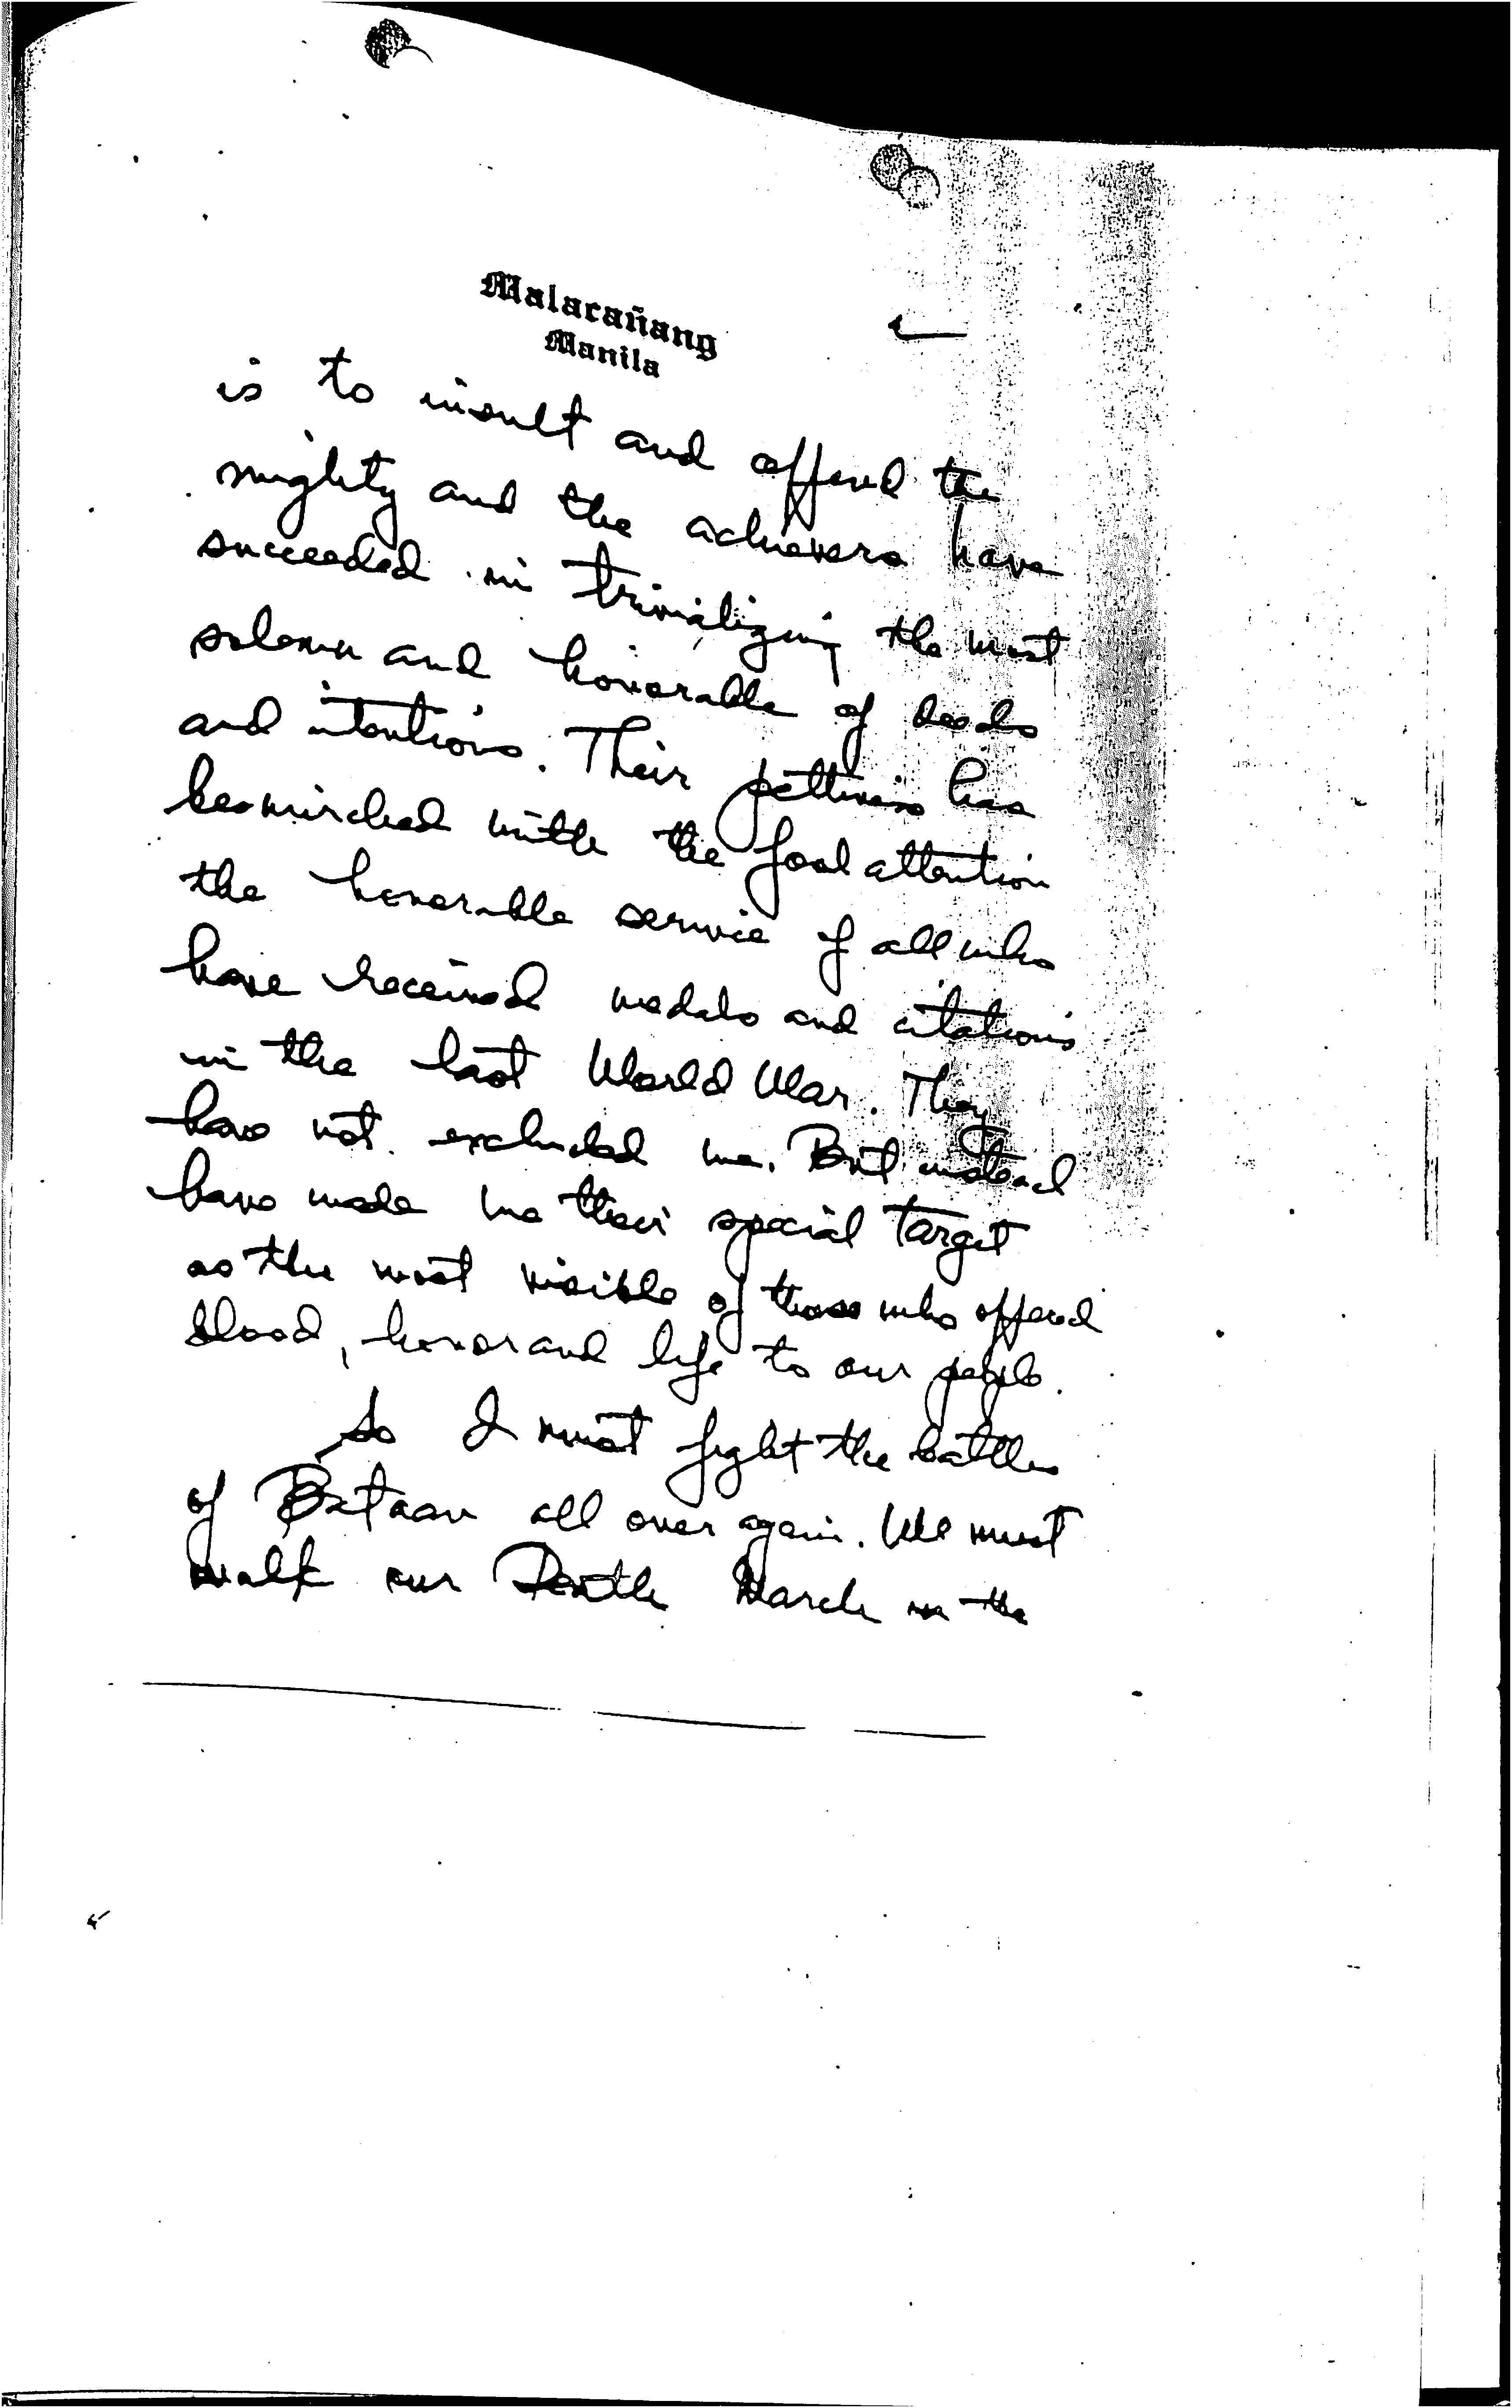 Malacañang
Manila
is to insult and offend the
mighty and the achievers have
succeeded in trivializing the most
solemn and honorable of deeds
and intentions. Their pettiness has
besmirched with the attention
the honorable service of all who
have received medals and citations
in the last World War. They
have not excluded me. But instead
have made me their special target
as the most visible of those who offered
blood, honor and life to our people.
So I must fight the battles
of Bataan all over again. We must
walk our Death March on the